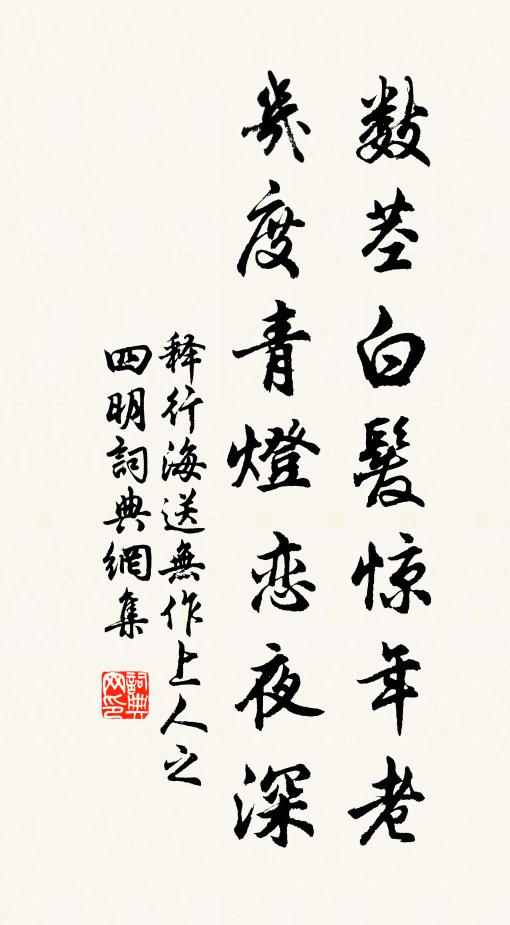 数茎白髮惊年老
幾度青燈恋夜深
释行海送無作上人之
四明詞典網集
詞典网印